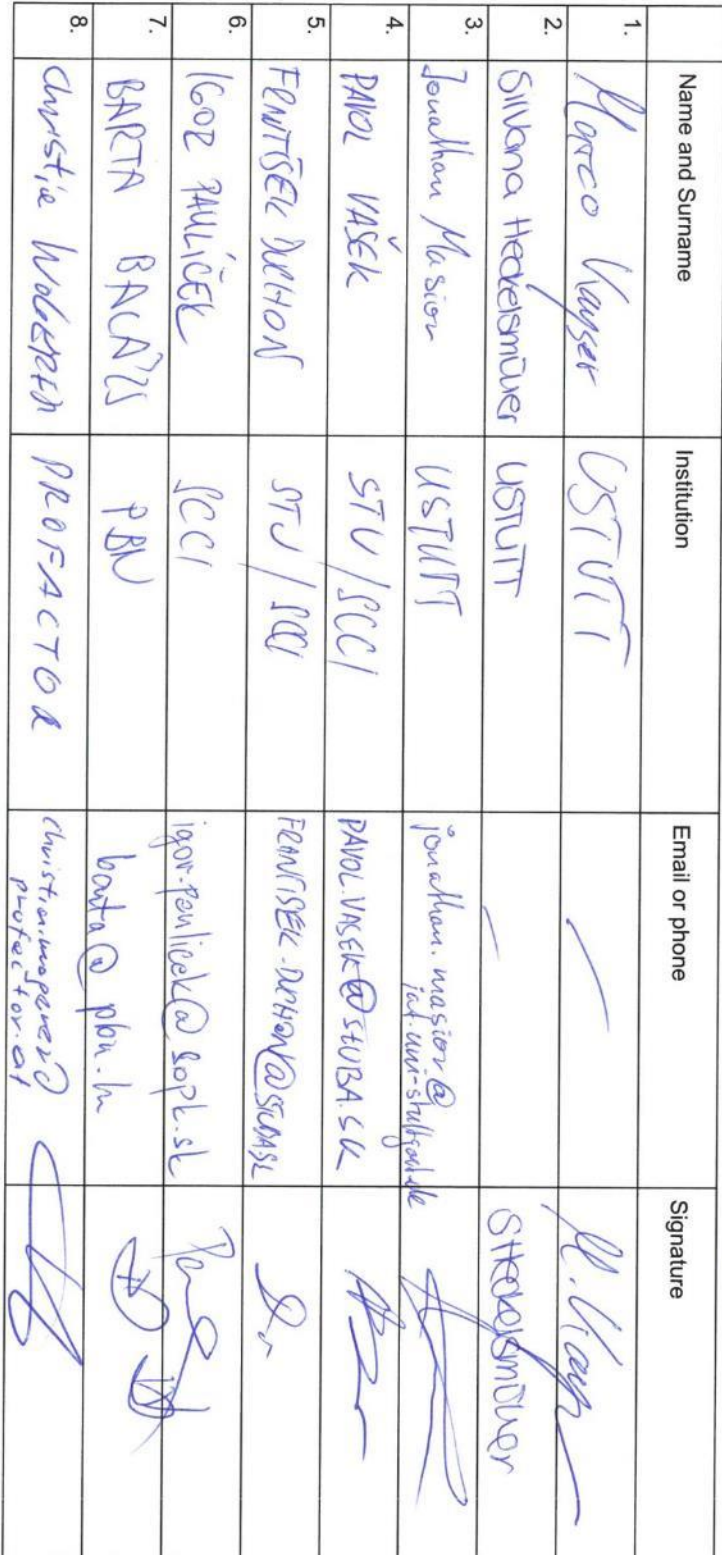 Name and Surname Institution Email or phone Signature
1. Marco Kayser USTUTT M. Kays
2. Silvana Heckelsmüller USTUTT SHeckelsmüller
3. Jonathan Masior USTUTT jonathan.masior@
iat.uni-stuttgart.de
4. PAVOL VAŠEK STU/SCCI PAVOL.VASEK@STUBA.SK
5. FRANTIŠEK DUCHOŇ STU/SCCI FRANTISEK.DUCHON@STUBA.SK
6. IGOR PAULÍČEK SCCI igor.paulicek@sopk.sk
7. BARTA BALÁZS PBN barta@pbn.hu
8. Christian PROFACTOR
profactor.at